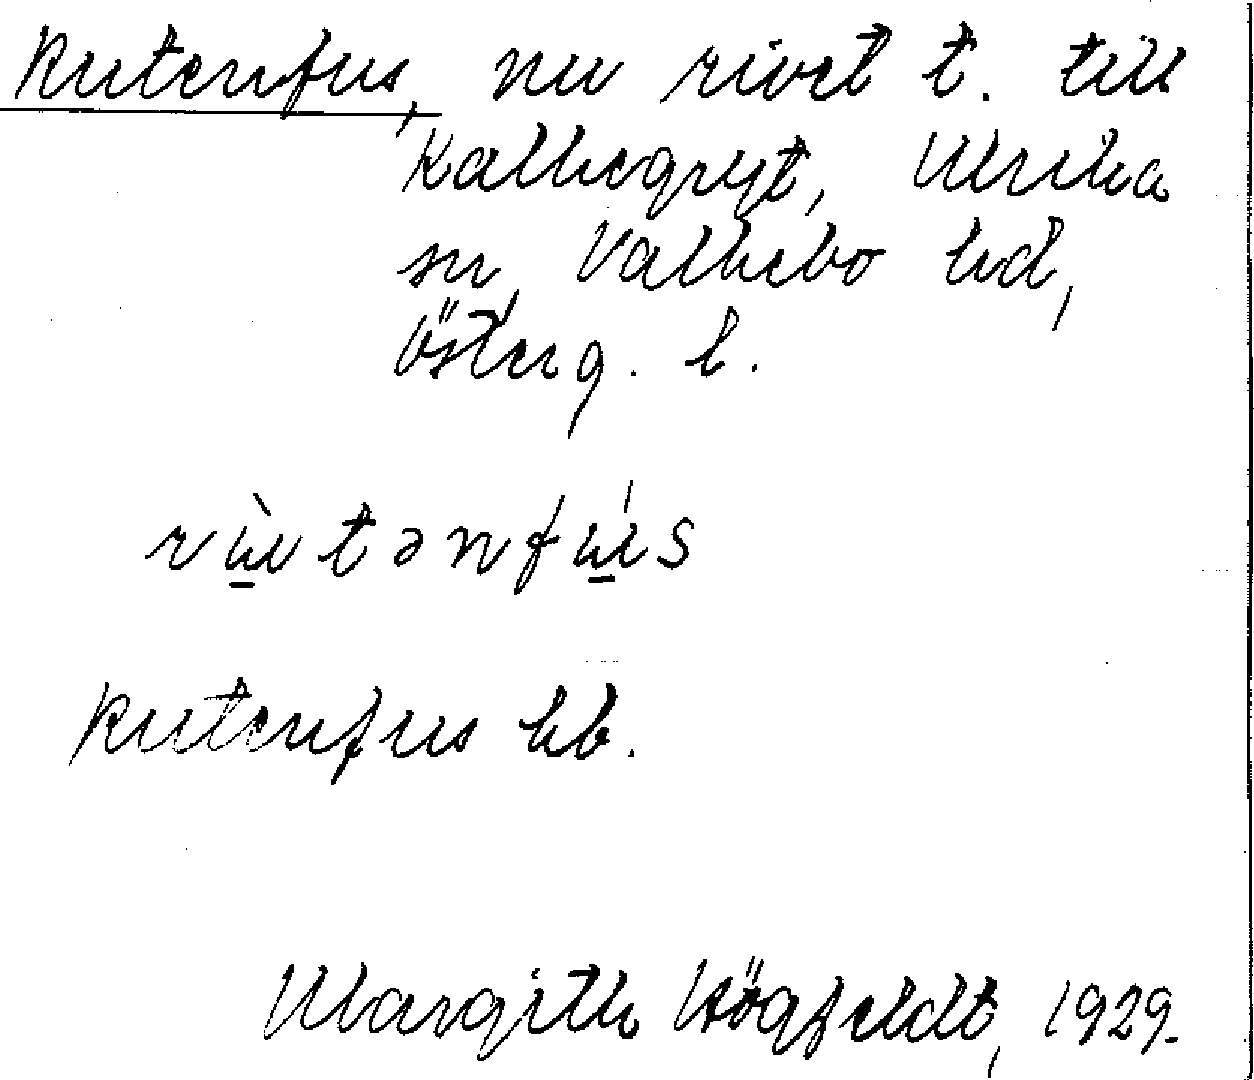 Rutenfus, nu rivet t. till
Kalhegryt, Ulrika
sn, Valkebo hd,
Österg. l.
rùtənfús
Rutenfus hb.
Margith Högfeldt, 1929.